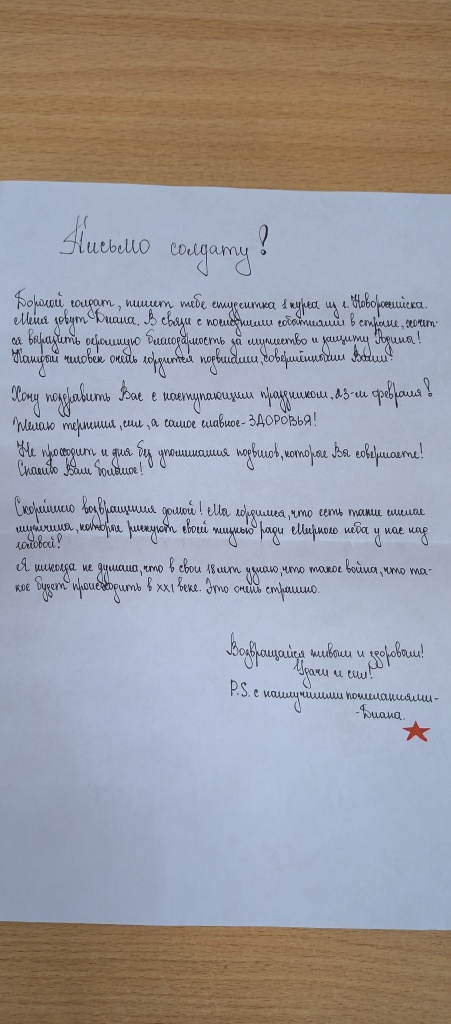 Письмо солдату!
Дорогой солдат, пишет тебе студентка 1 курса из г. Новороссийска.
Меня зовут Диана. В связи с последними событиями в стране, хочет-
ся выразить огромную благодарность за мужество и защиту Родины!
Каждый человек очень гордится подвигами, совершёнными Вами!
Хочу поздравить Вас с наступающим праздником, 23-им февраля!
Желаю терпения, сил, а самое главное- ЗДОРОВЬЯ!
Не проходит и дня без упоминания подвигов, которые Вы совершаете!
Спасибо Вам большое!
Скорейшего возвращения домой! Мы гордимся, что есть такие смелые
мужчины, которые рискуют своей жизнью ради Мирного неба у нас над
головой!
Я никогда не думала, что в свои 18 лет узнаю, что такое война, что та-
кое будет происходить в XXI веке. Это очень страшно.
Возвращайся живым и здоровым!
Удачи и сил!
P.S. с наилучшими пожеланиями-
-Диана.